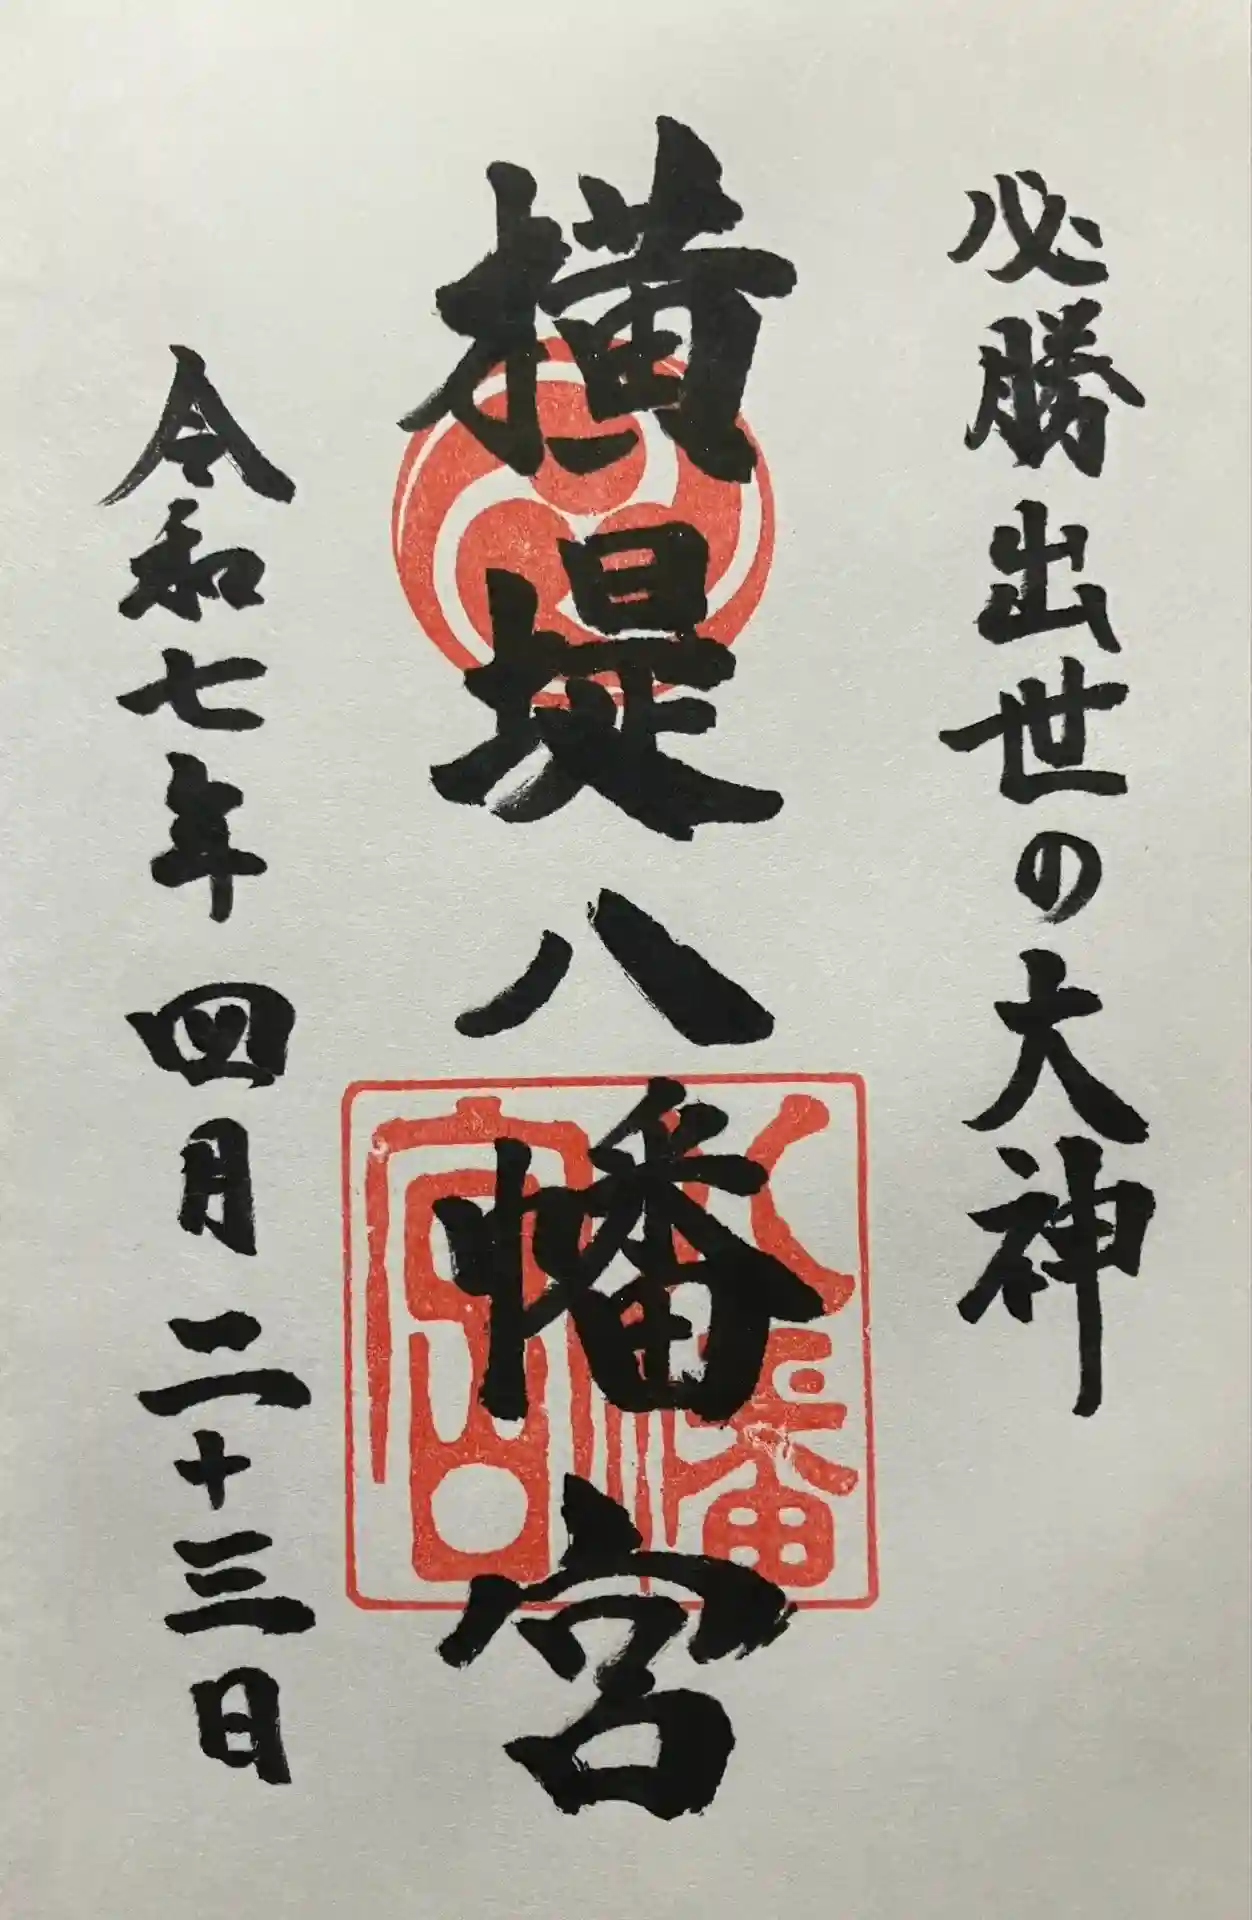 必勝出世の大神
横堤八幡宮
八幡宮
令和七年 四月 二十三日